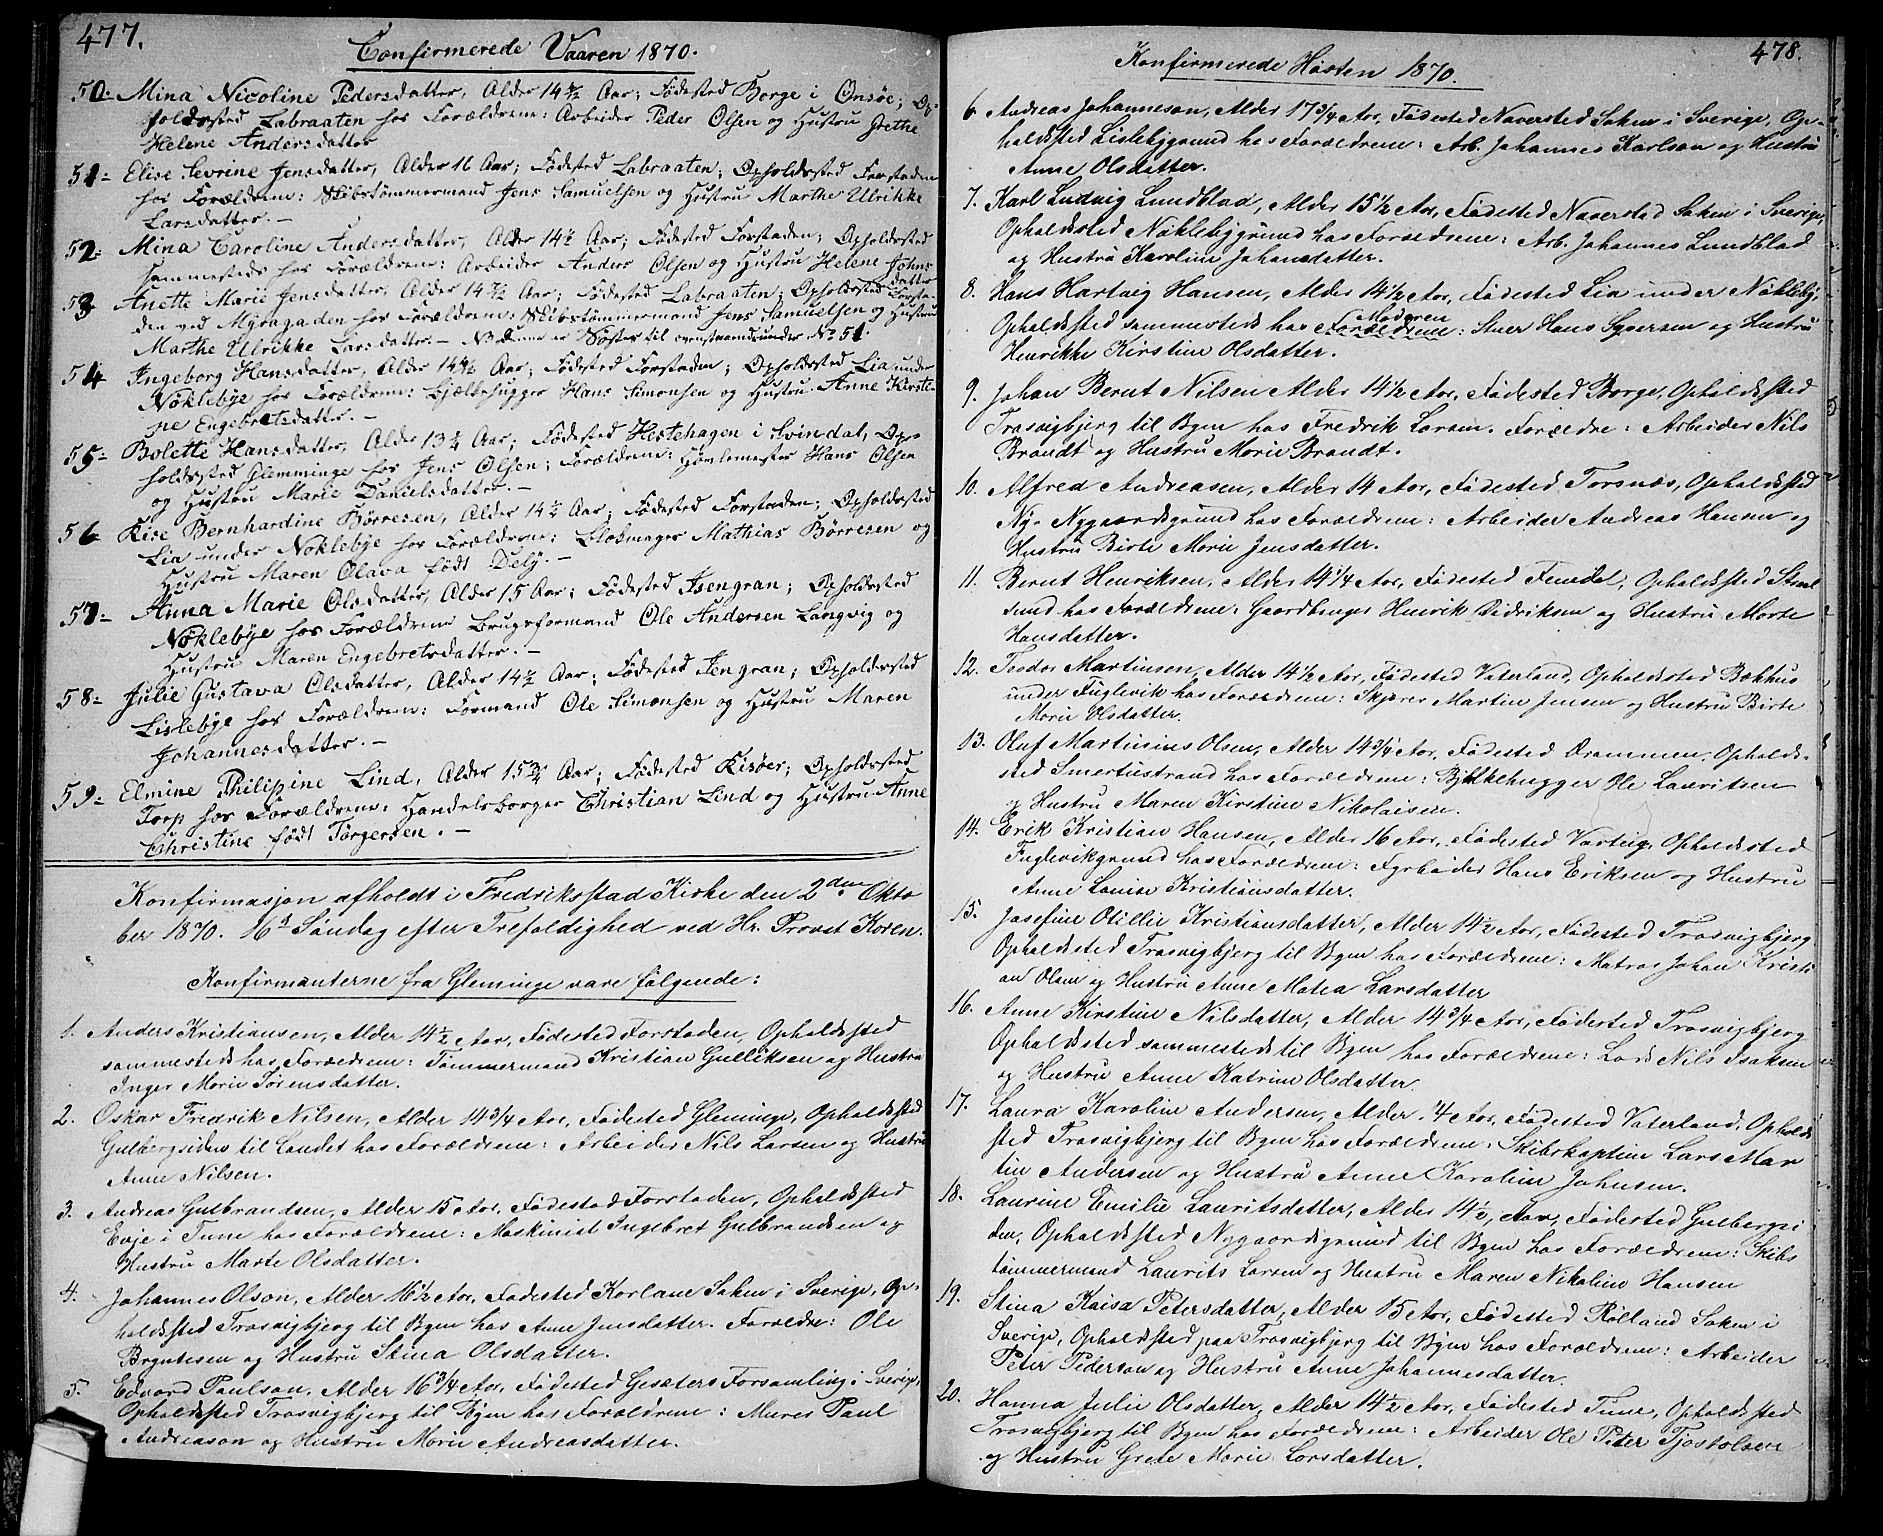 477.
Confirmerede Vaaren 1870.
50- Mina Nicoline Pedersdatter, Alder 14 1/2 Aar; Fødested Borge i Onsøe; Op-
holdssted Labraaten hos Forældrene: Arbeider Peder Olsen og Hustru Grethe
Helene Andersdatter
51- Elise Sevrine Jensdatter, Alder 16 Aar; Fødested Labraaten; Opholdssted Forstaden
hos Forældrene: Skibstømmermand Jens Samuelsen og Hustru Marthe Ulrikke
Larsdatter. -
52- Mina Caroline Andersdatter, Alder 14 1/2 Aar; Fødested Forstaden; Opholdssted
sammesteds hos Forældrene: Arbeider Anders Olsen og Hustru Helene Johns
datter
53 Anette Marie Jensdatter, Alder 14 1/2 Aar; Fødested Labraaten; Opholdssted Forsta-
den ved Myragaden hos Forældrene: Skibstømmermand Jens Samuelsen og Hustru
Marthe Ulrikke Larsdatter. - NB. denne er Søster til ovenstaaende under No 51.
54 Ingeborg Hansdatter, Alder 14 1/2 Aar; Fødested Forstaden; Opholdssted Lia under
Nøklebye hos Forældrene: Bjælkehugger Hans Simonsen og Hustru Anne Kirste-
ne Engebretsdatter. -
55- Bolette Hansdatter, Alder 13 3/4 Aar; Fødested Hestehagen i Svindal, Op-
holdssted Glemminge hos Jens Olsen; Forældrene: Høvlemester Hans Olsen
og Hustru Marie Danielsdatter. -
56 Lise Bernhardine Børresen, Alder 14 1/2 Aar; Fødested Forstaden; Opholdssted
Lia under Nøklebye hos Forældrene: Blokmager Mathias Børresen og
Hustru Maren Olava født Dely. -
57- Anna Marie Olsdatter, Alder 15 Aar; Fødested Isengran; Opholdssted
Nøklebye hos Forældrene Brugsformand Ole Andersen Langvig og
Hustru Maren Engebretsdatter. -
58- Julie Gustava Olsdatter, Alder 14 1/2 Aar; Fødested Isengran; Opholdssted
Lislebye hos Forældrene: Formand Ole Simonsen og Hustru Maren
Johannesdatter. -
59- Elmine Philipine Lind, Alder 15 3/4 Aar; Fødested Risøer; Opholdssted
Torp hos Forældrene: Handelsborger Christian Lind og Hustru Anne
Christine født Torgersen. -
Konfirmasjon afholdt i Fredriksstad Kirke den 2den Okto
ber 1870. 16s Søndag efter Trefoldighed ved Hr. Provst Koren.
Konfirmanterne fra Gleminge vare følgende:
1. Anders Kristiansen, Alder 14 1/2 Aar, Fødested Forstaden, Opholdssted
sammesteds hos Forældrene: Tømmermand Kristian Gulliksen og Hustru
Inger Marie Sørensdatter.
2. Oskar Fredrik Nilsen, Alder 14 3/4 Aar, Fødested Gleminge, Opholdssted
Gulbergsiden til Landet hos Forældrene: Arbeider Nils Larsen og Hustru
Anne Nilsen.
3. Andreas Gulbrandsen, Alder 15 Aar, Fødested Forstaden, Opholdssted
Evje i Tune hos Forældrene: Maskinist Ingebret Gulbrandsen og
Hustru Marte Olsdatter.
4. Johannes Olson, Alder 16 1/2 Aar, Fødested Korlane Soken i Sverige, Op-
holdssted Trosvigbjerg til Byen hos Anne Jensdatter. Forældre: Ole
Bryntesen og Hustru Stina Olsdatter.
5. Edvard Paulson, Alder 16 3/4 Aar, Fødested Gesæters Forsamling i Sverige,
Opholdssted Trosvigbjerg til Byen hos Forældrene: Murer Paul
Andreason og Hustru Marie Andreasdatter.
478.
Konfirmerede Høsten 1870.
6 Andreas Johanneson, Alder 17 3/4 Aar, Fødested Naversted Soken i Sverige, Op-
holdssted Lislebygrund hos Forældrene: Arb. Johannes Karlson og Hustru
Anne Olsdatter.
7. Karl Ludvig Lundblad, Alder 15 1/2 Aar, Fødested Naverstad Soken i Sverige,
Opholdssted Nøklebygrund hos Forældrene: Arb. Johannes Lundblad
og Hustru Karoline Johansdatter.
8. Hans Hartvig Hansen, Alder 14 1/2 Aar, Fødested Lia under Nøkleby,
Moderen
Opholdssted sammesteds hos Forældrene: Stuer Hans Syversen og Hustru
Henrikke Kirstine Olsdatter.
9. Johan Bernt Nilsen Alder 14 1/2 Aar, Fødested Borge, Opholdssted
Trosvigbjerg til Byen hos Fredrik Larsen. Forældre: Arbeider Nils
Brandt og Hustru Marie Brandt.
10. Alfred Andreasen, Alder 14 Aar, Fødested Torsnæs, Opholdssted
Ny- Nygaardsgrund hos Forældrene: Arbeider Andreas Hansen og
Hustru Birte Marie Jensdatter.
11. Bernt Henriksen, Alder 14 1/4 Aar, Fødested Femdal, Opholdssted Stral
sund hos Forældrene: Gaardbruger Henrik Didriksen og Hustru Marte
Hansdatter.
12. Teodor Martinsen, Alder 14 1/2 Aar, Fødested Vaterland, Opholdssted Bækhus
under Fuglevik hos Forældrene: Skjærer Martin Jensen og Hustru Birte
Marie Olsdatter.
13. Oluf Martinius Olsen, Alder 14 3/4 Aar, Fødested Drammen, Opholds-
sted Smertustrand hos Forældrene: Bjelkehugger Ole Lauritsen
og Hustru Maren Kirstine Nikolaisen.
14. Erik Kristian Hansen, Alder 16 Aar, Fødested Varteig, Opholdssted
Fuglevikgrund hos Forældrene: Fyrbøder Hans Eriksen og Hustru
Anne Louise Kristiansdatter.
15. Josefine Otillie Kristiansdatter, Alder 14 1/2 Aar, Fødested Trosvigbjerg
Opholdssted Trosvigbjerg til Byen hos Forældrene: Matros Johan Kristi
an Olsen og Hustru Anne Matea Larsdatter
16. Anne Kirstine Nilsdatter, Alder 14 3/4 Aar, Fødested Trosvigbjerg
Opholdssted sammesteds til Byen hos Forældrene: Lods Nils Isaksen
og Hustru Anne Katrine Olsdatter.
17. Laura Karoline Andersen, Alder 14 Aar, Fødested Vaterland, Opholds
sted Trosvigbjerg til Byen hos Forældrene: Skibskaptein Lars Mar
tin Andersen og Hustru Anne Karoline Johnsen.
18. Laurine Emilie Lauritsdatter, Alder 14 1/2, Aar, Fødested Gulbergsi
den, Opholdssted Nygaardsgrund til Byen hos Forældrene: Skibs
tømmermand Laurits Larsen og Hustru Maren Nikoline Hansen
19. Stina Kaisa Petersdatter, Alder 15 Aar, Fødested Rølland Soken i
Sverige, Opholdssted paa Trosvigbjerg til Byen hos Forældrene: Arbeider
Peter Pederson og Hustru Anne Johannesdatter.
20. Hanna Julie Olsdatter, Alder 14 1/2 Aar, Fødested Tune, Opholdssted
Trosvigbjerg til Byen hos Forældrene: Arbeider Ole Peter Tjostolsen
og Hustru Grete Marie Larsdatter.